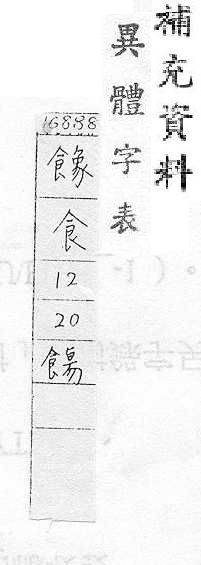 補充資料
異體字表
食
12
20
餳